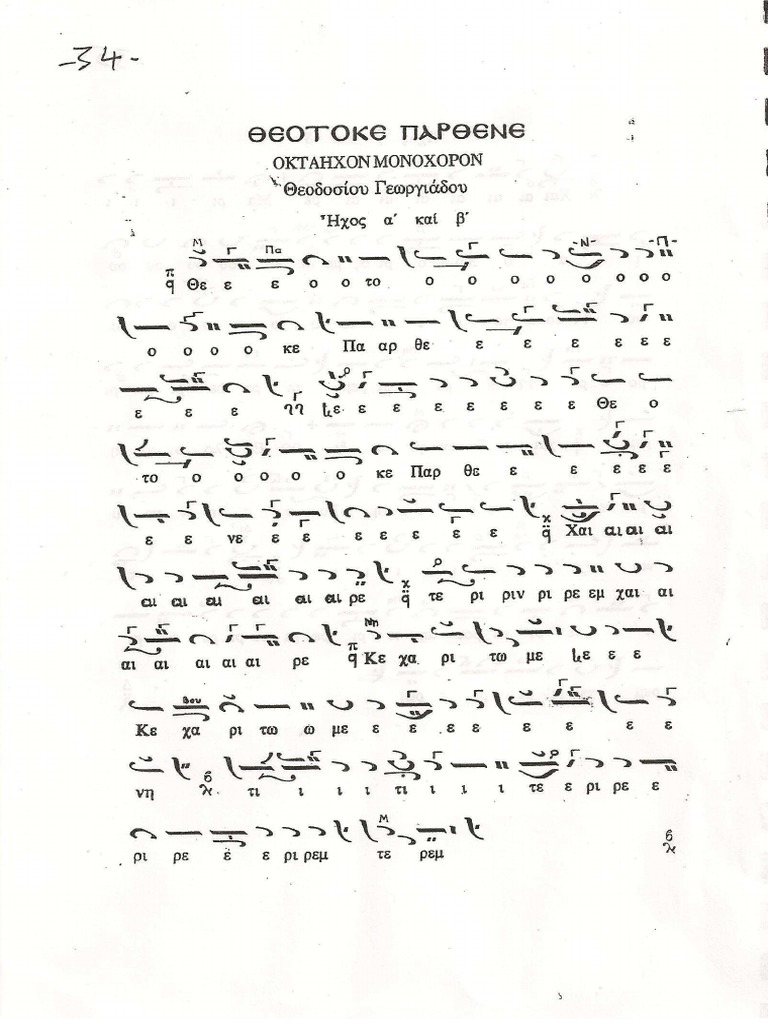 -34-
ΘΕΟΤΟΚΕ ΠΑΡΘΕΝΕ
ΟΚΤΑΗΧΟΝ ΜΟΝΟΧΟΡΟΝ
Θεοδοσίου Γεωργιάδου
Ἦχος α´ καί β´
Μ Πα -Ν- -Π-
Θε ε ε ο ο το ο ο ο ο ο ο ο ο
ο ο ο ο κε Πα αρ θε ε ε ε ε ε ε
ε ε ε ε ε ε ε ε ε ε ε Θε ο
το ο ο ο ο ο κε Παρ θε ε ε ε ε ε
ε ε νε ε ε ε ε ε ε ε ε Χαι αι αι αι
αι αι αι αι αι αι ρε τε ρι ριν ρι ρε εμ χαι αι
Νη
αι αι αι αι αι ρε Κε χα ρι τω με ε ε ε
Βου
Κε χα ρι τω ω με ε ε ε ε ε ε ε ε
νη τι ι ι ι τι ι ι ι τε ε ρι ρε ε
Μ
ρι ρε ε ε ρι ρεμ τε ρεμ